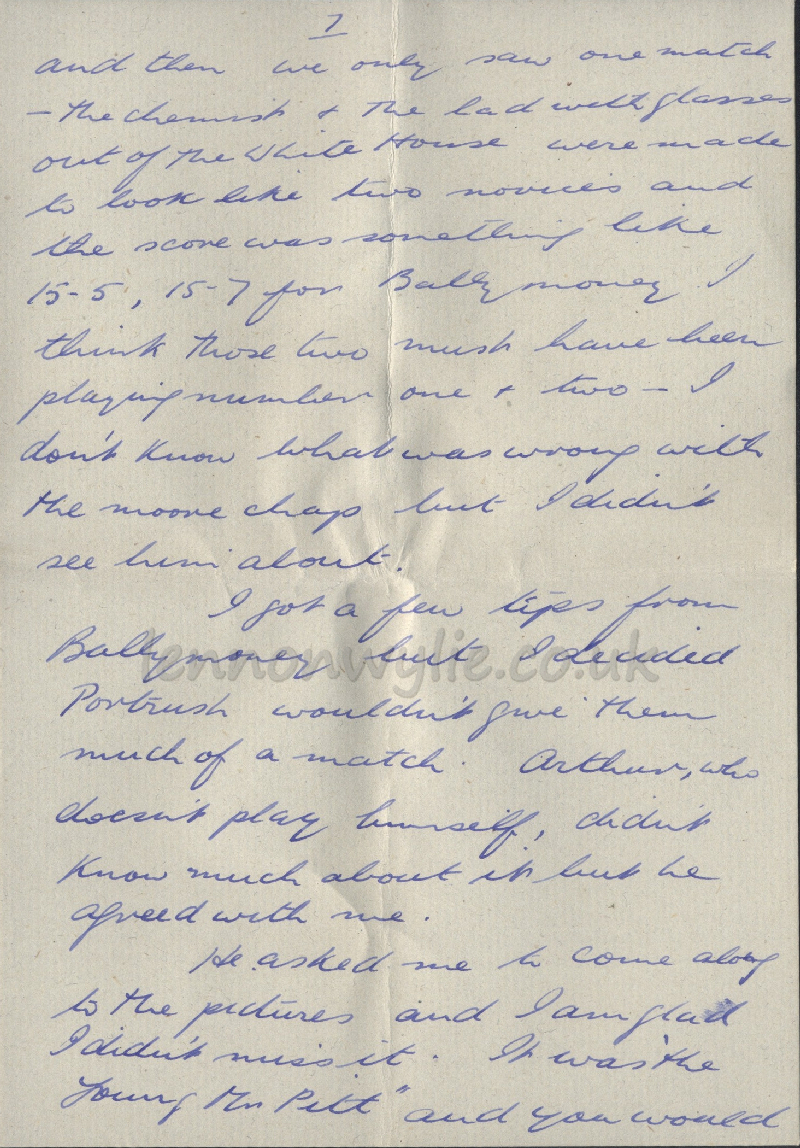 7
and then we only saw one match
- the chemist & the lad with glasses
out of the White House were made
to look like two novices and
the score was something like
15-5, 15-7 for Ballymoney I
think those two must have been
playing number one & two - I
don't know what was wrong with
the moore chap but I didn't
see him about.
I got a few tips from
Ballymoney but I decided
lennonwylie.co.uk
Portrush wouldn't give them
much of a match. Arthur, who
doesn't play himself, didn't
know much about it but he
agreed with me.
He asked me to come along
to the pictures and I am glad
I didn't miss it. It was "the
Young Mr Pitt" and you would